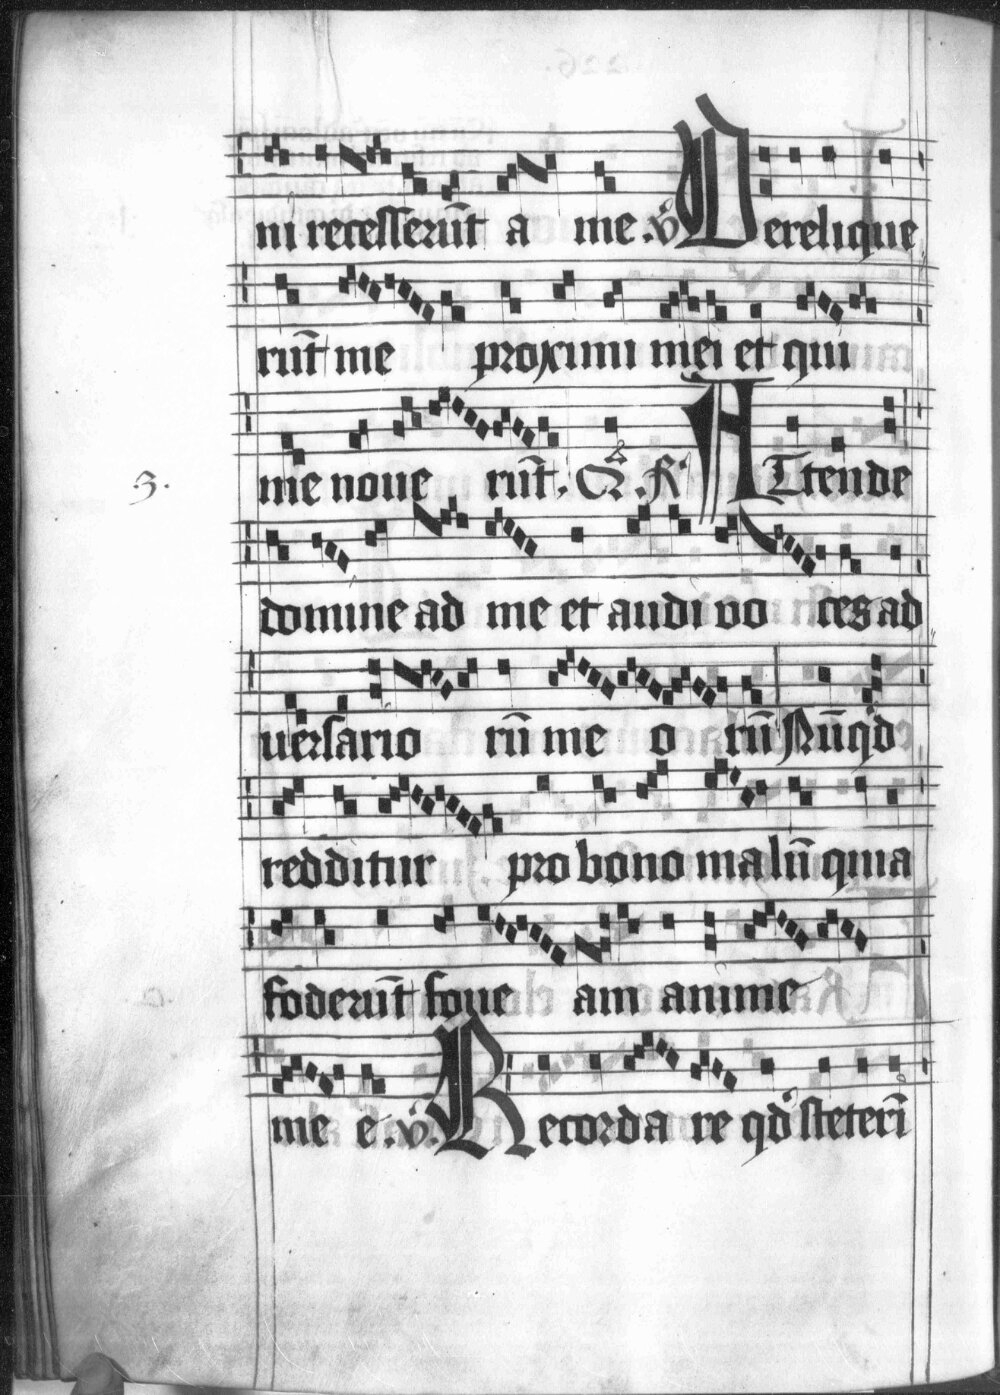 ni recesserūt a me .v̊. Derelique
rūt me proximi mei et qui
me noue rūt. Q̃. R̃ Attende
3.
domine ad me et audi vo ces ad
uersario rū me o rū Nūqd
redditur pro bono malū quia
foderūt foue am anime
me e .v̊. Recorda re qd steterī